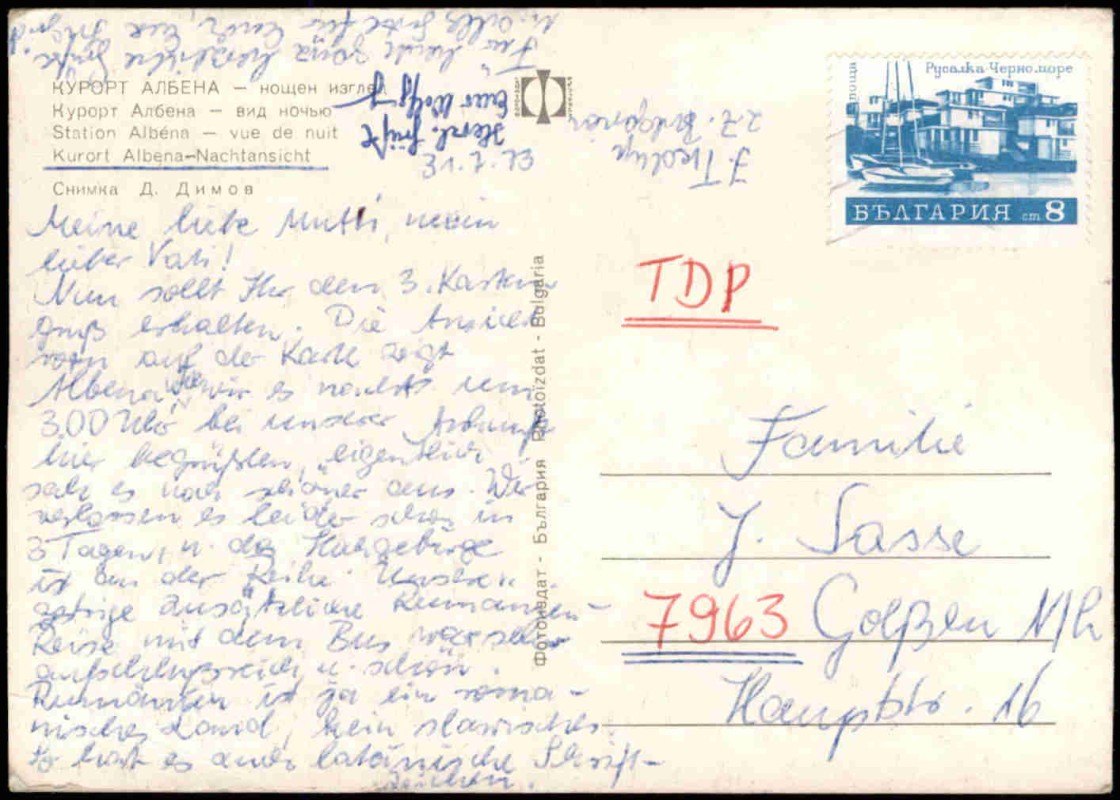 КУРОРТ АЛБЕНА — нощен изглед
Курорт Албена — вид ночью
Station Albéna — vue de nuit
Kurort Albena-Nachtansicht
Снимка Д. Димов
Meine liebe Mutti, mein
lieber Vati!
Nun sollt Ihr den 3. Karten-
gruß erhalten. Die Ansicht
vorn auf der Karte zeigt
Albena wie wir es nachts um
3.00 Uhr bei unserer Ankunft
hier begrüßten, eigentlich
sah es noch schöner aus. Wir
verlassen es leider schon in
3 Tagen, u. das Hochgebirge
ist an der Reihe. Unsere
gestrige zusätzliche Rumänien-
Reise mit dem Bus war sehr
aufschlußreich u. schön.
Rumänien ist ja ein roma-
nisches Land, kein slawisches.
So hat es auch latänische Schrift-
zeichen.
Für heute ganz herzliche Grüße,
u. alles Gute für Euch, Eure
Herzl. Grüße
Euer Wolfg
Фотоиздат - България Photoizdat - Bulgaria
поща
Русалка-Черно море
БЪЛГАРИЯ ст 8
z.Z. Bulgarien
TDP
Familie
J. Sasse
7963 Golßen N/L
Hauptstr. 16